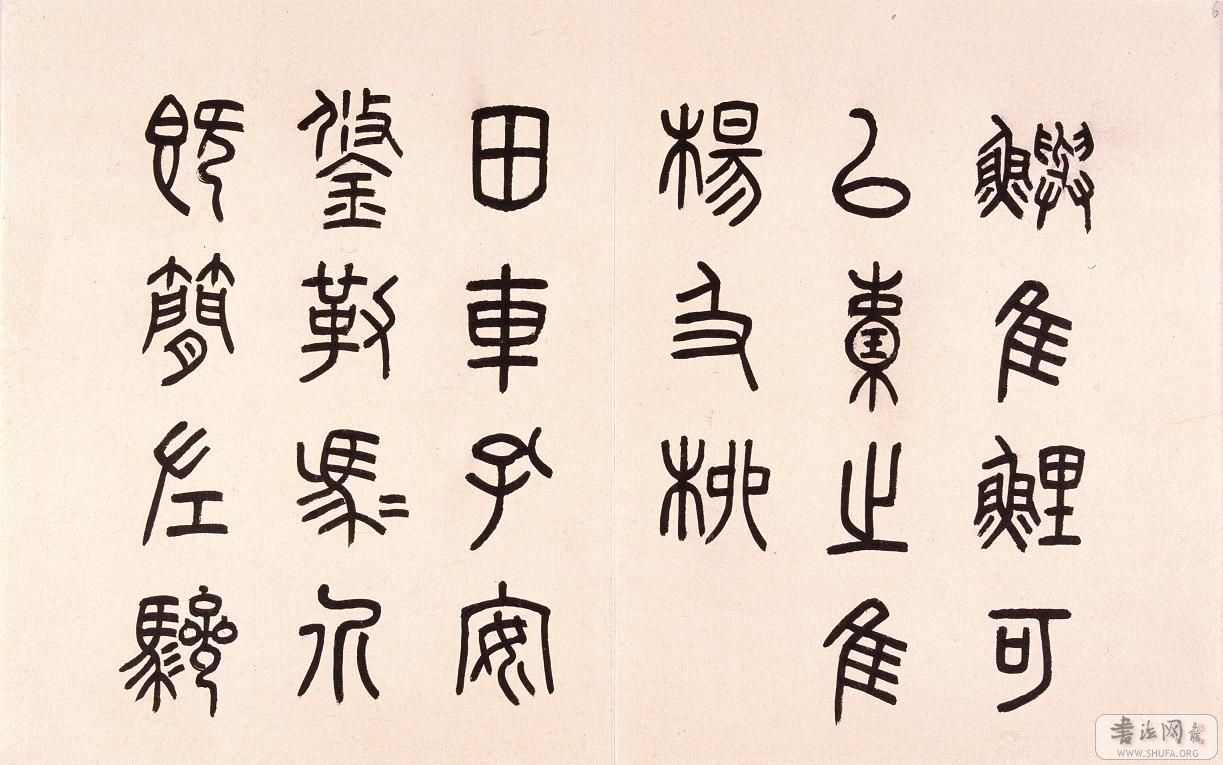 鱮隹鯉可
㠯橐之隹
楊及柳
田車孔安
鋚勒馬=介
既簡左驂
書法网
WWW.SHUFA.ORG